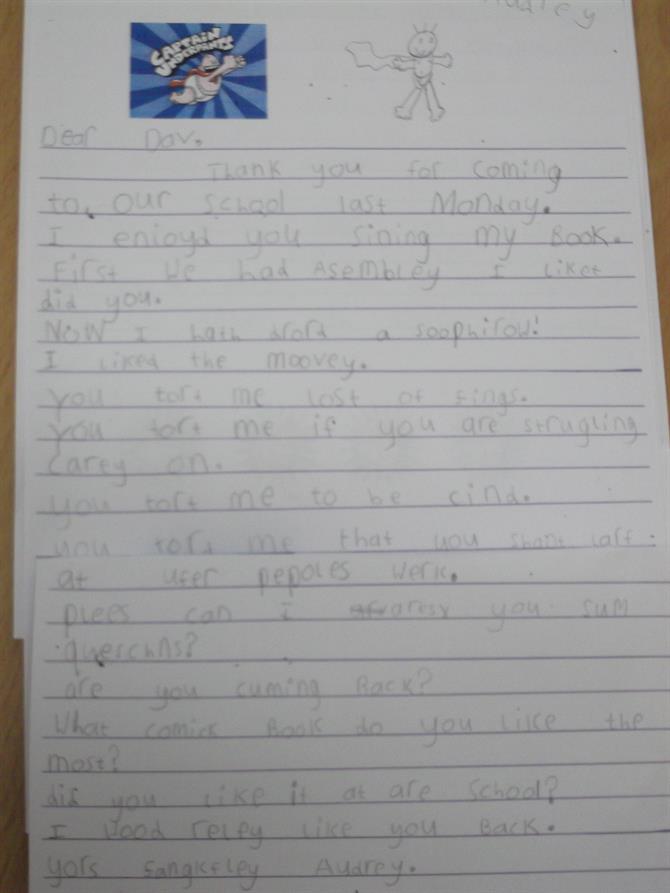 Audrey
CAPTAIN
UNDERPANTS
Dear Dav.
Thank you for coming
to, our school last Monday.
I enioyd you sining my Book.
First we had Asembley I liket
did you.
Now I hath drord a soophirow!
I liked the moovey.
you tort me lost of fings.
you tort me if you are strugling
carey on.
you tort me to be cind.
you tort me that you shant laff
at ufer pepoles werk.
plees can I you sum
queschns?
are you cuming Back?
What comick Book do you like the
most?
did you like it at are school?
I wood reley like you Back.
yors sangkfley Audrey.